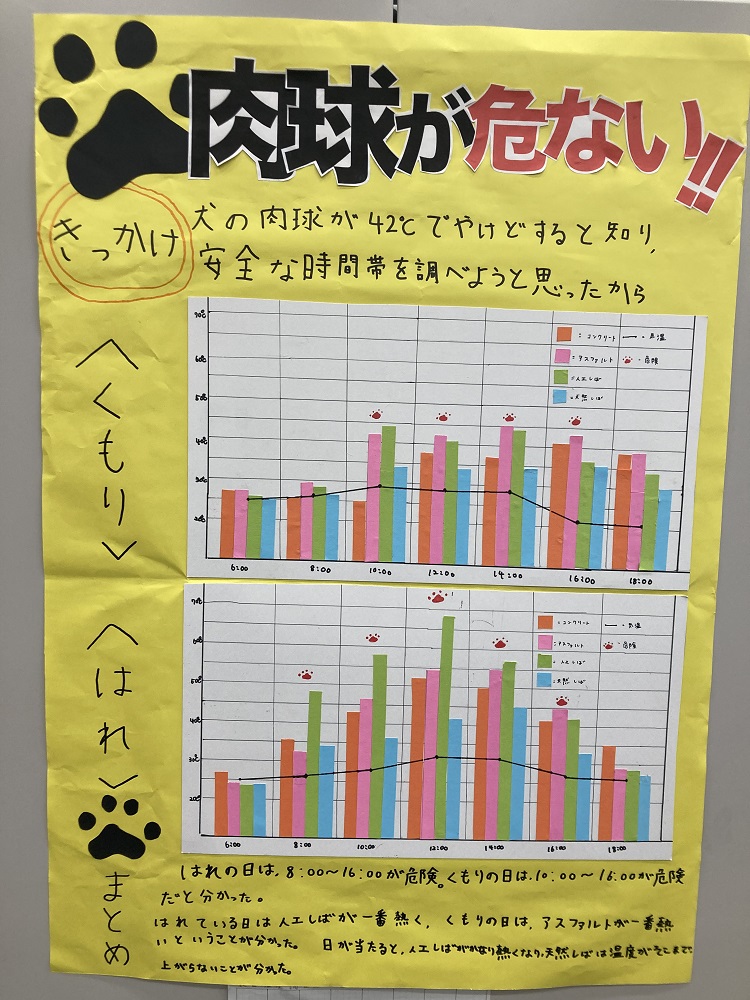 肉球が危ない!!
きっかけ
犬の肉球が42℃でやけどすると知り、
安全な時間帯を調べようと思ったから
〈くもり〉
70℃
60℃
50℃
40℃
30℃
20℃
:コンクリート
:気温
:アスファルト
:危険
:人工しば
:天然しば
6:00 8:00 10:00 12:00 14:00 16:00 18:00
〈はれ〉
70℃
60℃
50℃
40℃
30℃
20℃
:コンクリート
:気温
:アスファルト
:危険
:人工しば
:天然しば
6:00 8:00 10:00 12:00 14:00 16:00 18:00
まとめ
はれの日は、8:00〜16:00が危険。くもりの日は、10:00〜16:00が危険
だと分かった。
はれている日は人工しばが一番熱く、くもりの日は、アスファルトが一番熱
いということが分かった。 日が当たると、人工しばがかなり熱くなり、天然しばは温度がそこまで
上がらないことが分かった。